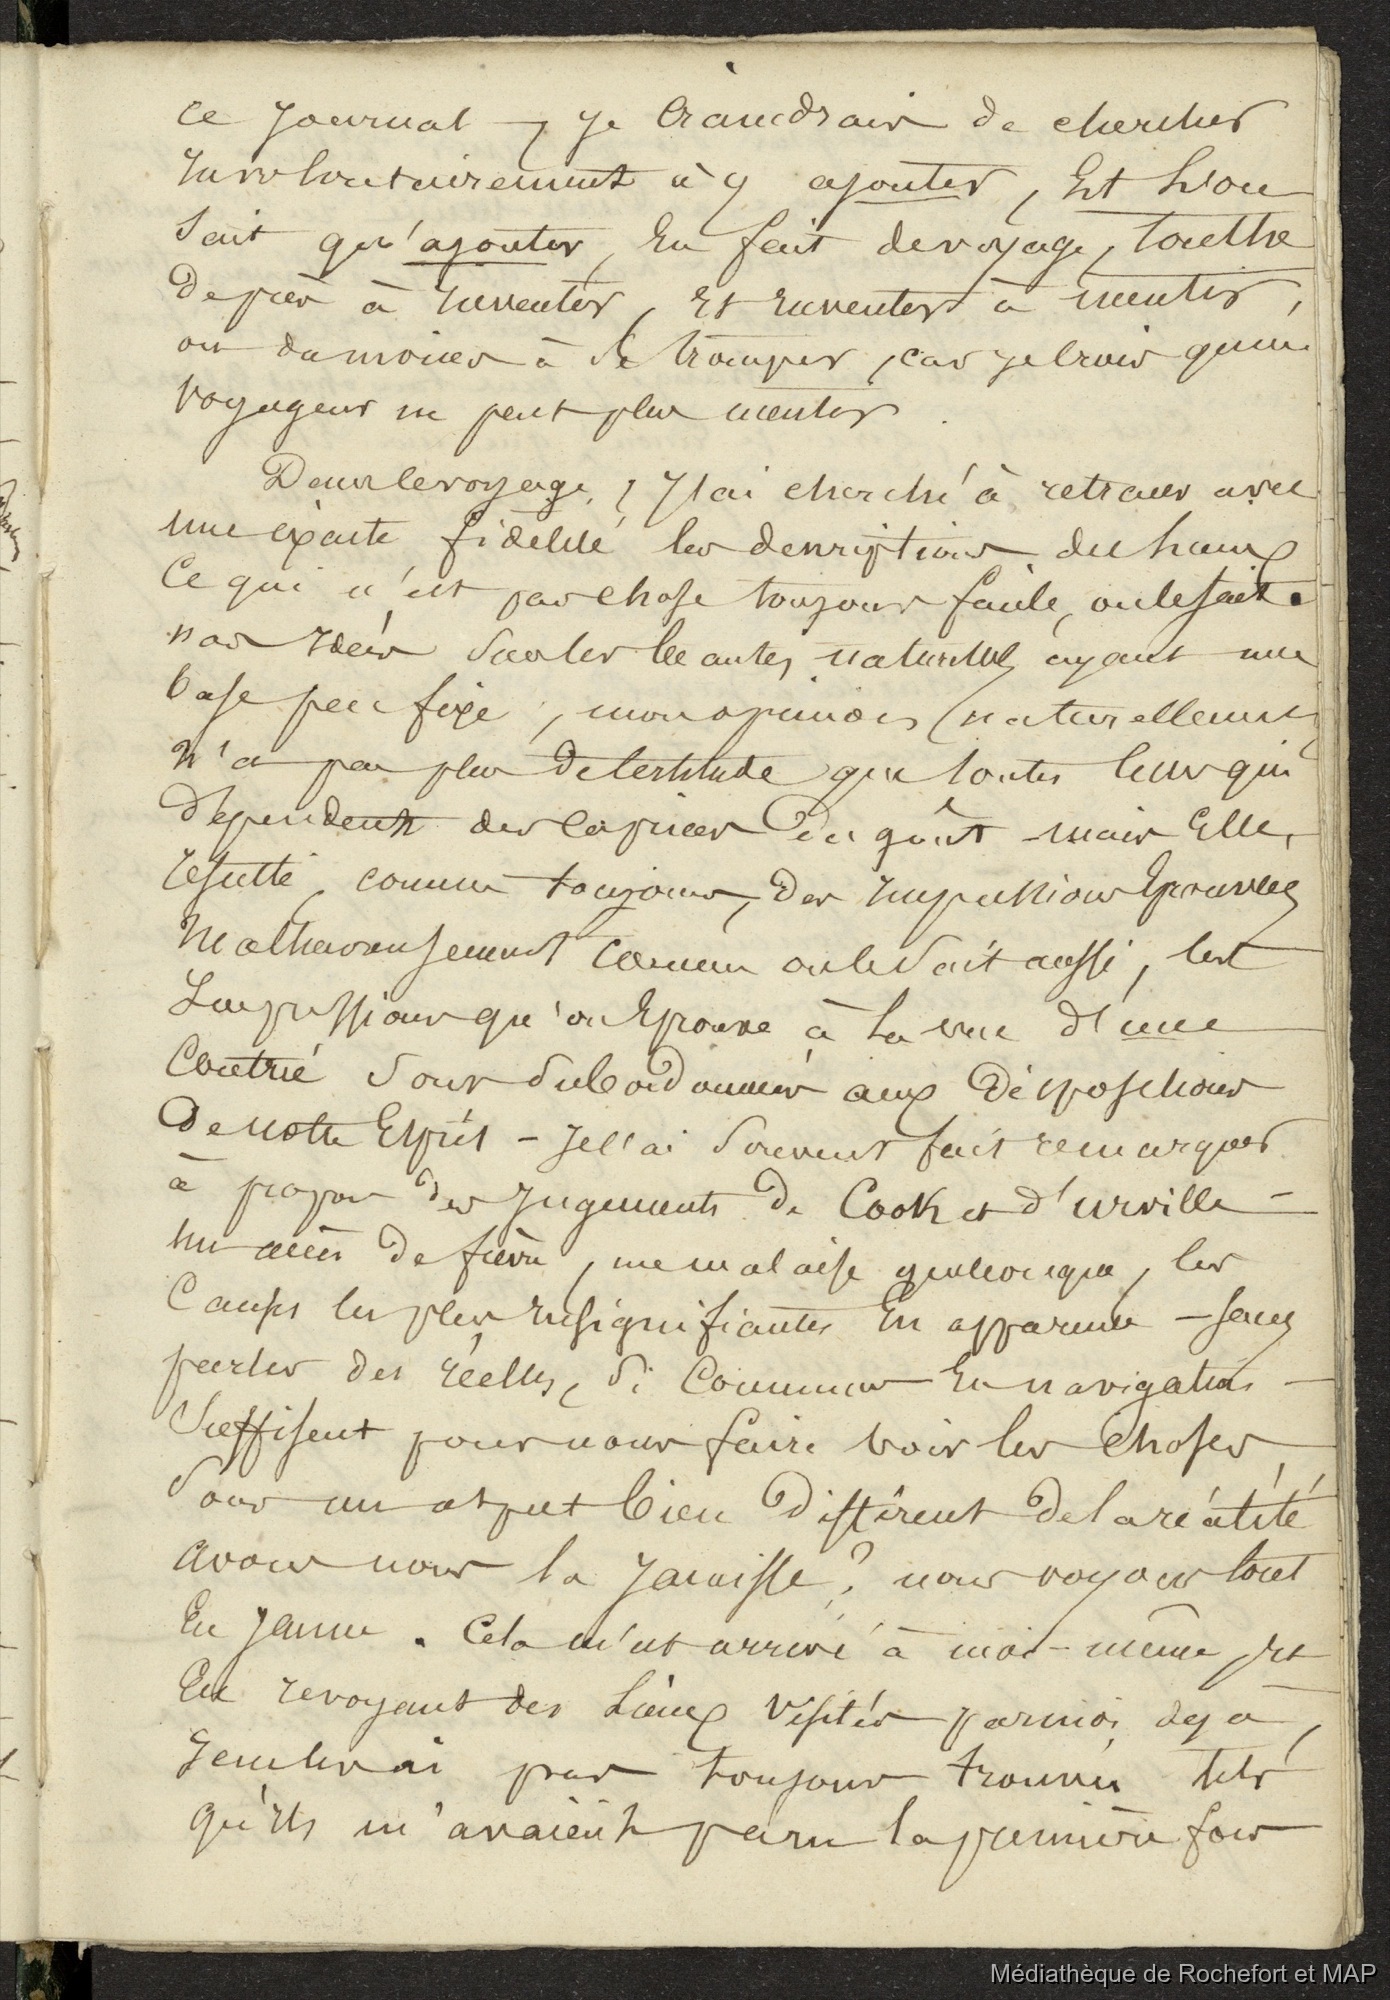 ce journal, je craindrais de chercher
involontairement à y ajouter, Et l'on
sait qu'ajouter, En fait de voyage, touche
de près à inventer, Et inventer à mentir,
ou du moins à se tromper, car je crois qu'un
voyageur ne peut plus mentir.
Dans le voyage, j'ai cherché à retracer avec
une exacte fidélité les descriptions des lieux
Ce qui n'est pas chose toujours facile, on le sait.
nos idées sur les beautés naturelles ayant une
base peu fixe, mon opinion (naturellement
n'a pas plus de certitude que toutes celles qui
dépendent des caprices du goût mais Elle
résulte, comme toujours, des impressions Eprouvées
Malheureusement comme on le sait aussi, les
Impressions qu'on Eprouve à la vue d'une
Contrée sont subordonnées aux Dispositions
De notre Esprit - je l'ai souvent fait remarquer
à propos des jugements de Cook et d'urville -
un accès De fièvre, un malaise quelconque, les
Causes les plus insignifiantes En apparence - sans
parler des réelles, si Communes En navigation -
Suffisent pour nous faire voir les choses
Sous un aspect bien Différent de la réalité
avons nous la jaunisse? nous voyons tout
En jaune. Cela m'est arrivé à moi-même, Et
En revoyant des Lieux visités par moi déjà,
je ne les ai pas toujours trouvés tels
qu'ils m'avaient paru la première fois
Médiathèque de Rochefort et MAP